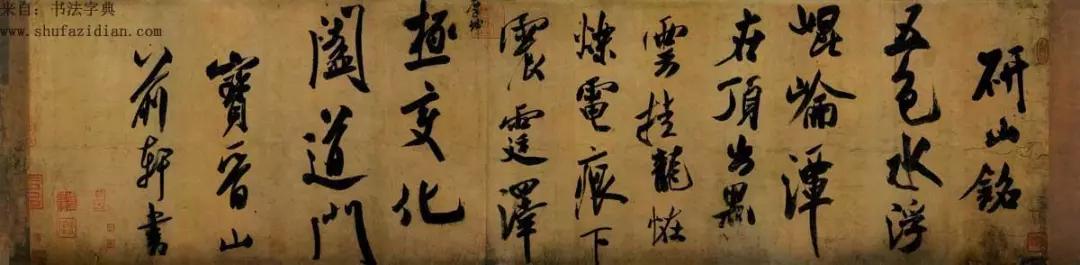 来自:书法字典
www.shufazidian.com
研山銘
五色水浮
崐崘潭
在頂出黑
雲挂龍怪
爍電痕下
震霆澤
厚坤
極變化
闔道門
寶晉山
前軒書